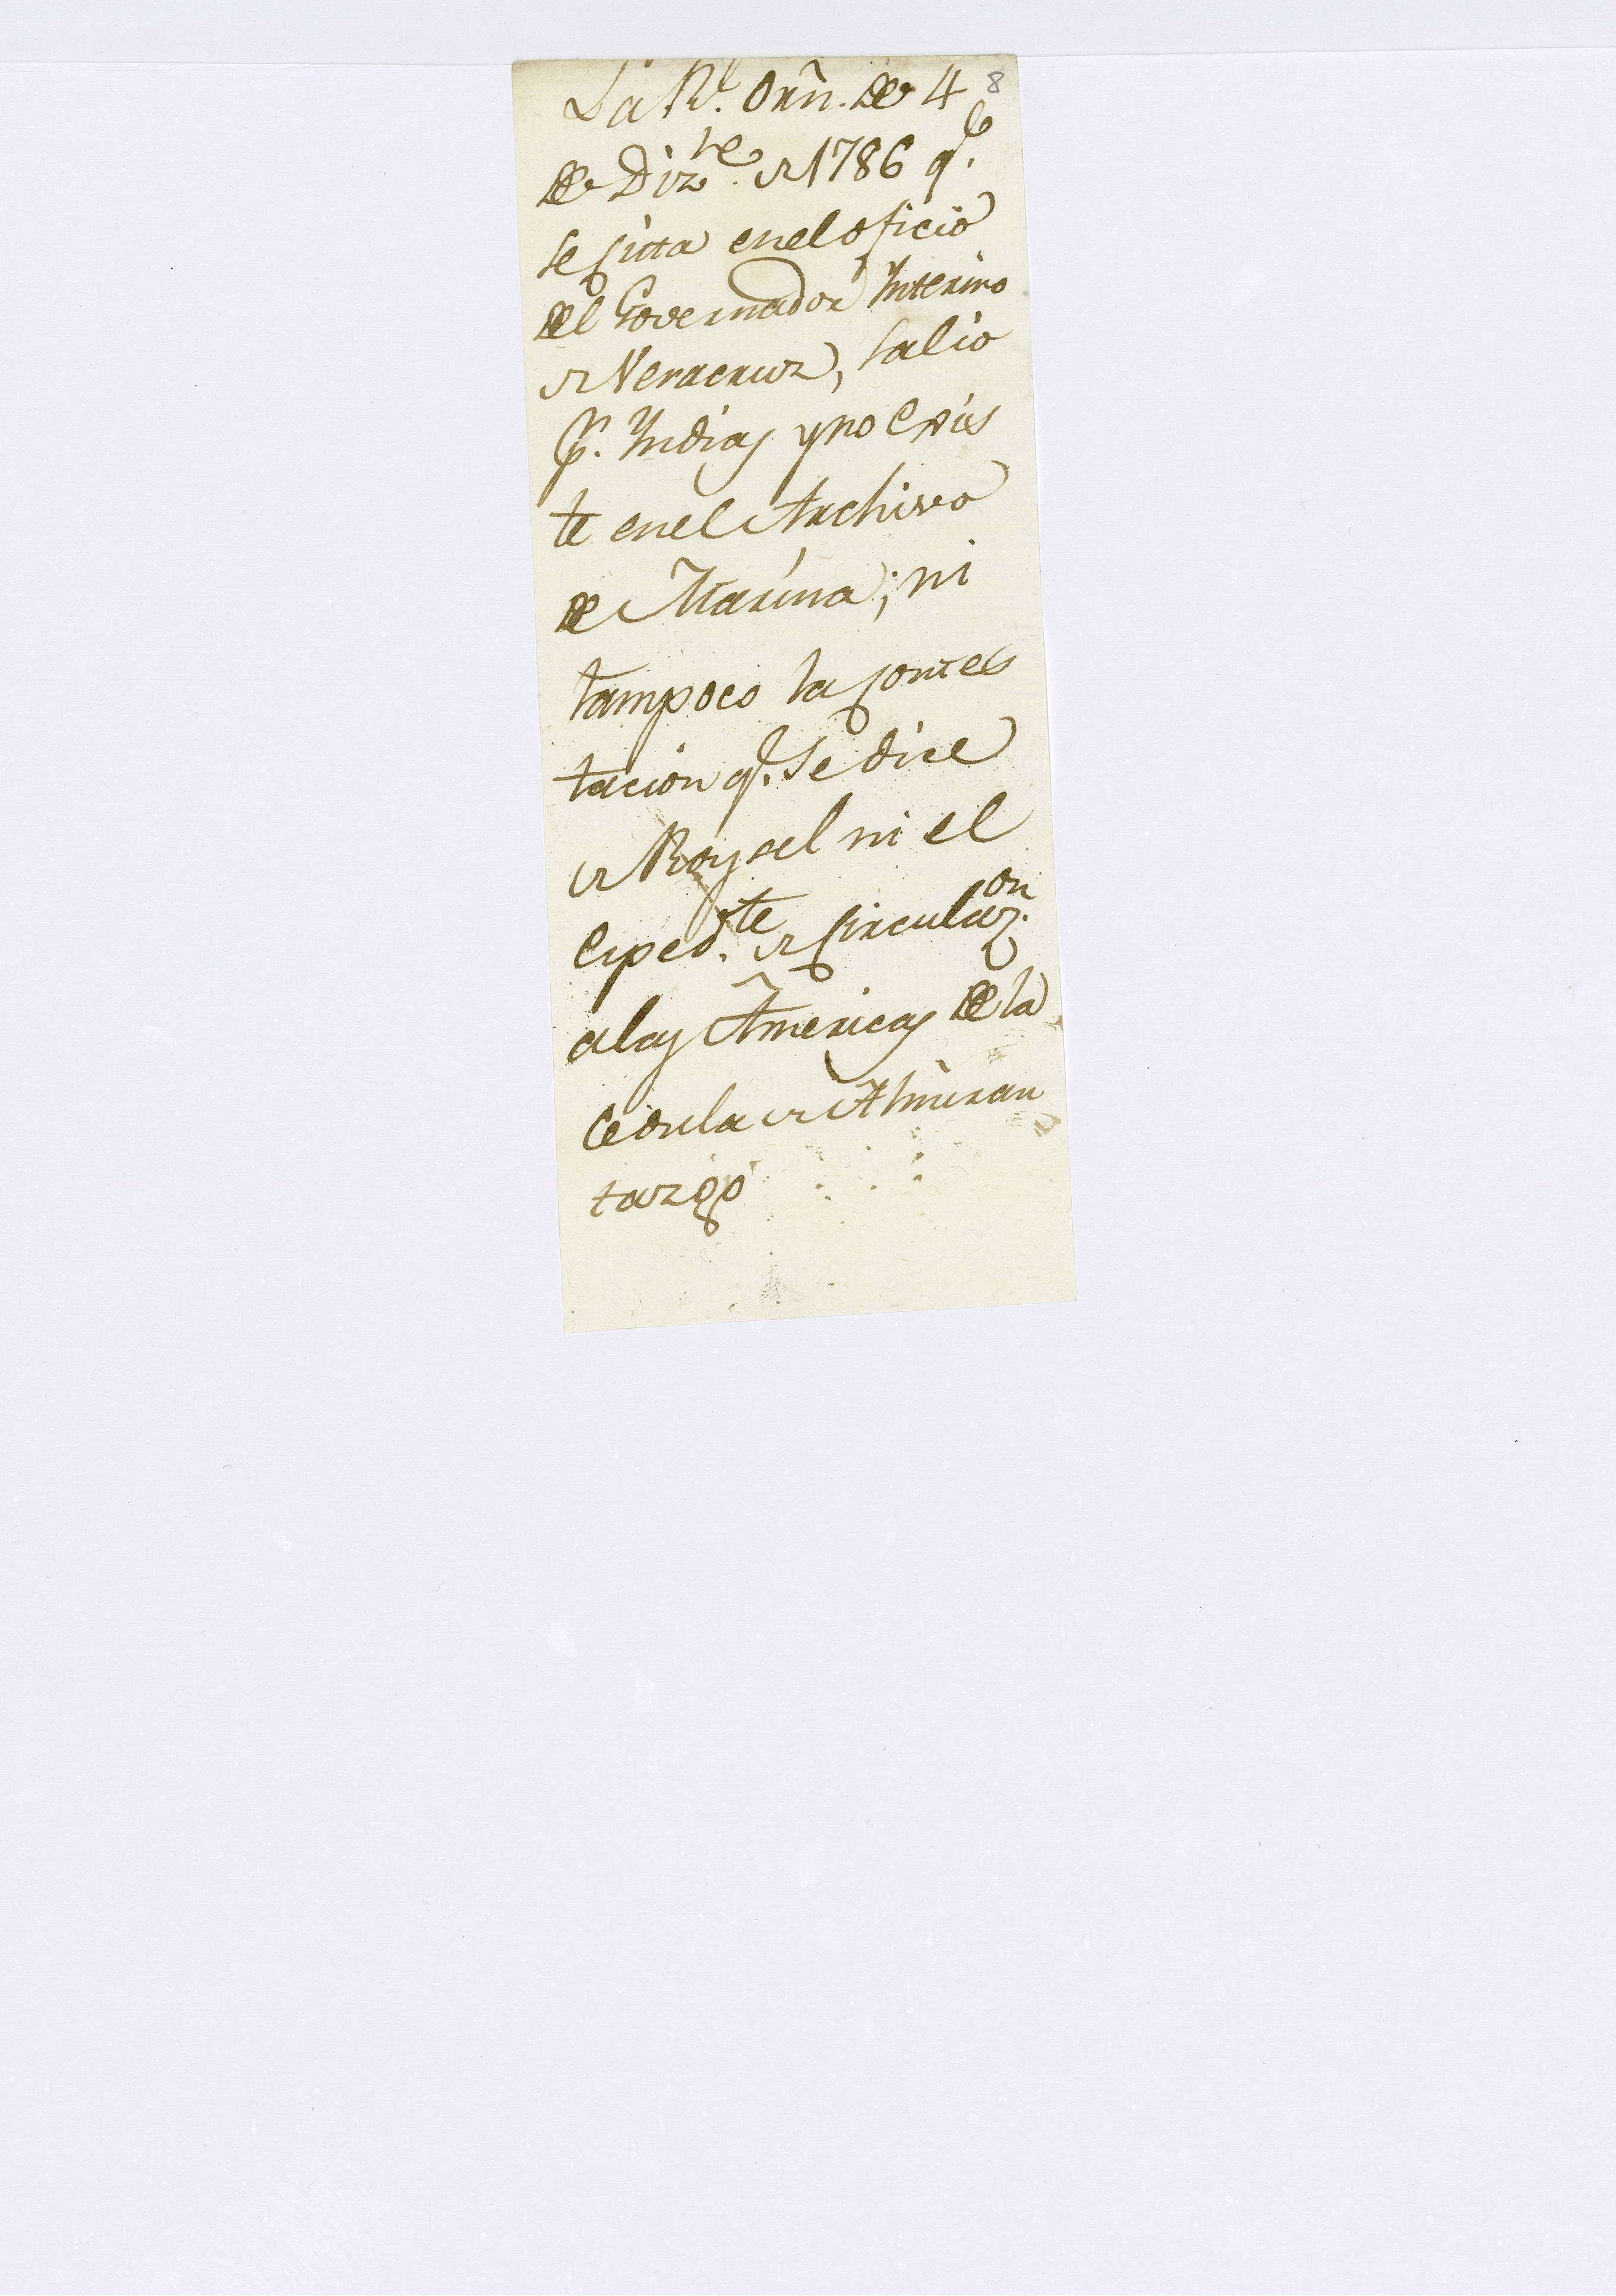 La Rl. Orñ. de 4 8
de Dizre. de 1786 qe.
se citta en el oficio
del Governador Interino
de Veracruz, salio
pr. Indias y no exis
te en el Archivo
de Marina; ni
tampoco la contes
tacion qe. se dice
de Roysel ni el
Exped.te de Circulazon.
a las Americas de la
Cedula de Almiran
tazgo